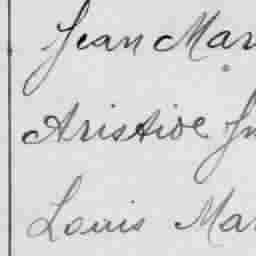 Jean Mar
Aristide
Louis Mar